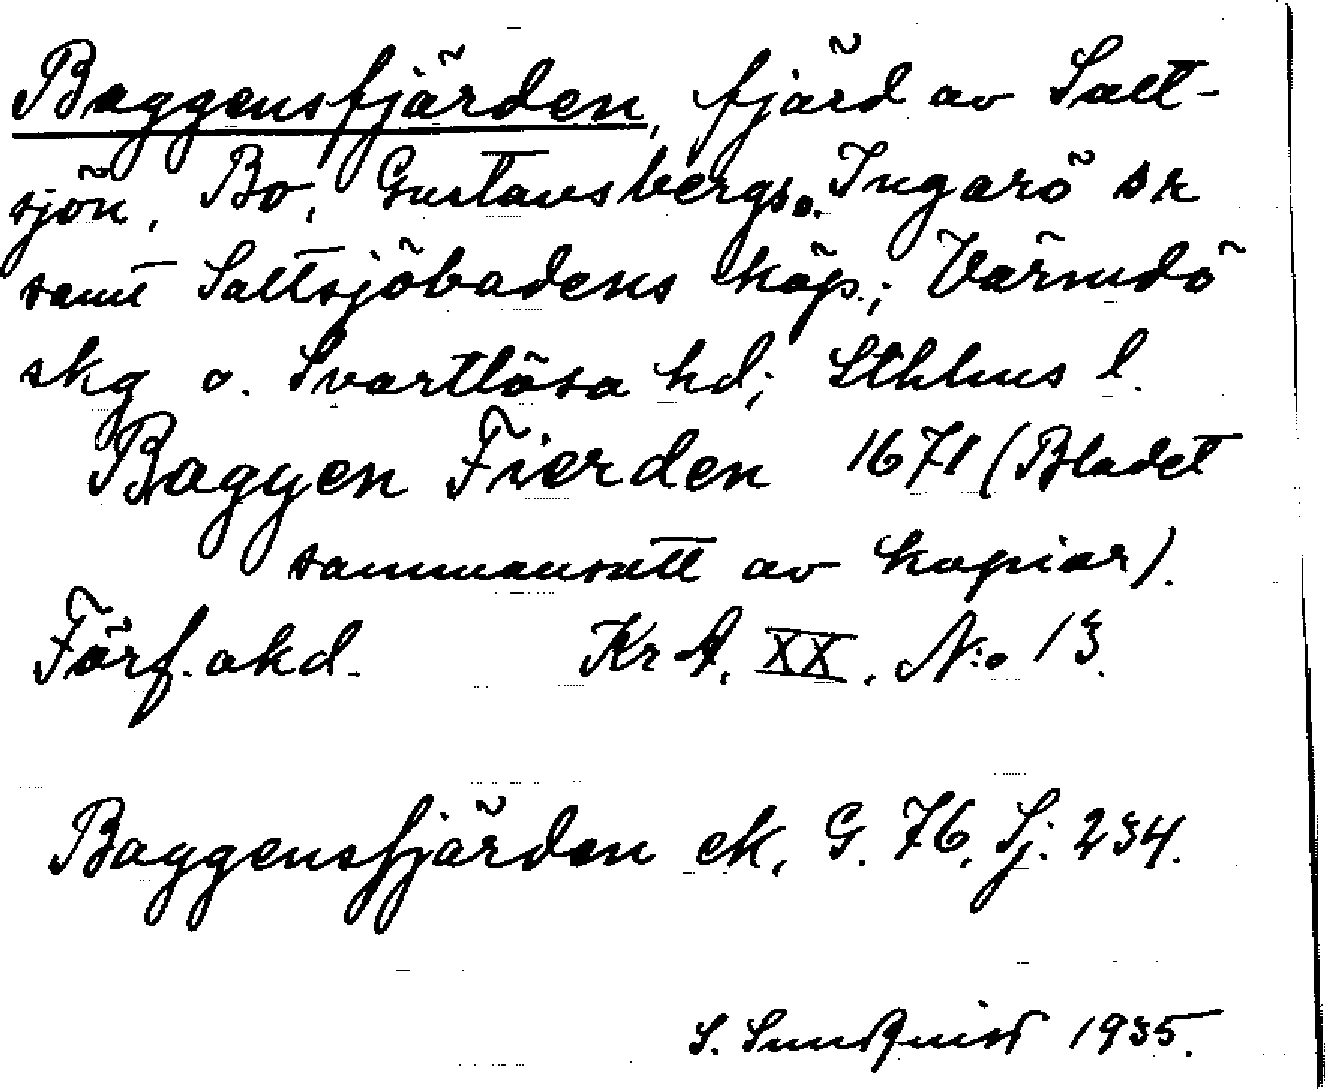 Baggensfjärden, fjärd av Salt-
sjön, Bo, Gustavsbergs o. Ingarö sk
samt Saltsjöbadens köp.; Värmdö
skg o. Svartlösa hd; Sthlms l.
Baggen Fierden 1671 (Bladet
sammansatt av kopior).
Förf. okd. KrA. XX. N:o 13.
Baggensfjärden ek. G. 76, Sj. 234.
S. Sundquist 1935.